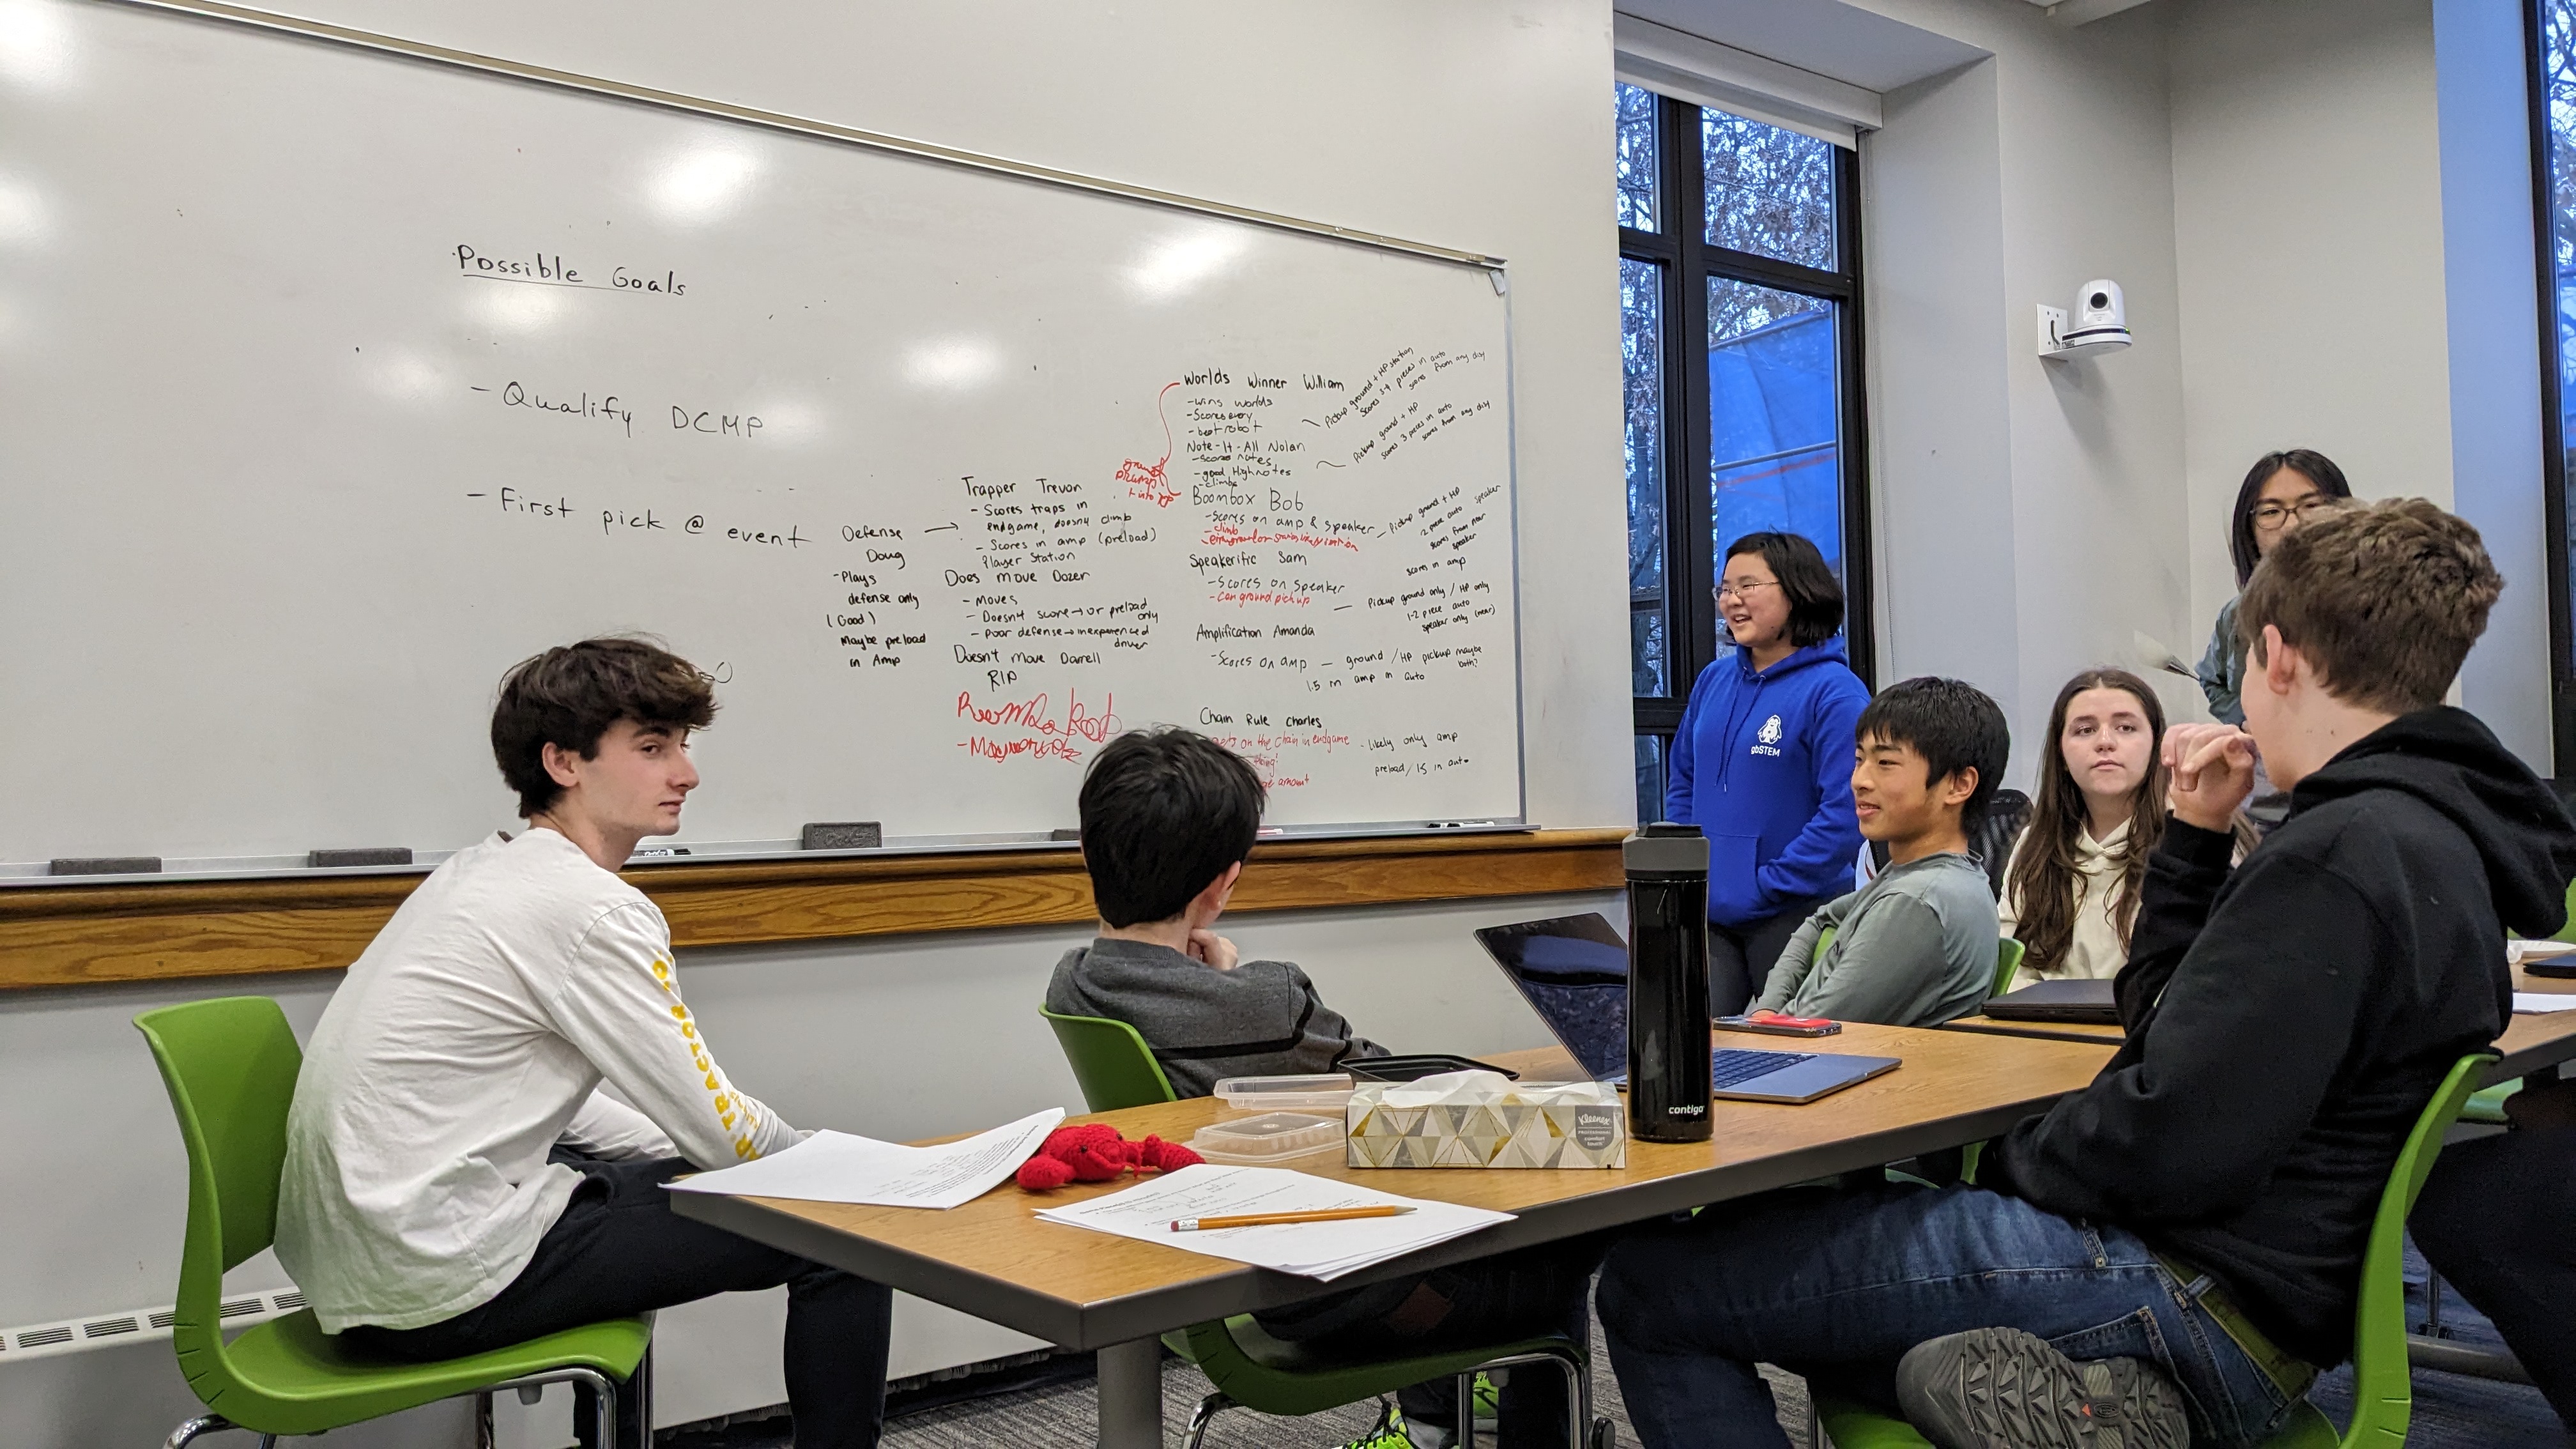 Possible Goals
- Qualify DCMP
- First pick @ event
Defense
Doug
- Plays
defense only
(Good)
Maybe preload
in Amp
Trapper Trevon
- Scores traps in
endgame, doesn't climb
- Scores in amp (preload)
Player Station
Does Move Dozer
- Moves
- Doesn't score → or preload
only
- Poor defense → inexperienced
driver
Doesn't Move Darrell
RIP
Worlds Winner William
- wins worlds
- Scores every
- best robot
Pickup ground + HP station
scores 3-4 pieces in auto
scores from any dist
Note-It-All Nolan
- scores notes
- good High notes
- climbs
Pickup ground + HP
scores 3 pieces in auto
scores from any dist
Boombox Bob
- Scores on amp & speaker
- climb
Pickup ground + HP
2 piece auto speaker
scores from near
speaker
scores in amp
Speakerific Sam
- Scores on speaker
- can ground pickup
Pickup ground only / HP only
1-2 piece auto
speaker only (near)
Amplification Amanda
- Scores on amp — ground / HP pickup maybe
both?
1.5 in amp in auto
Chain Rule Charles
on the chain in endgame
thing!
amount
- likely only amp
preload / 1.5 in auto
gbSTEM
contigo
Kleenex
PROFESSIONAL